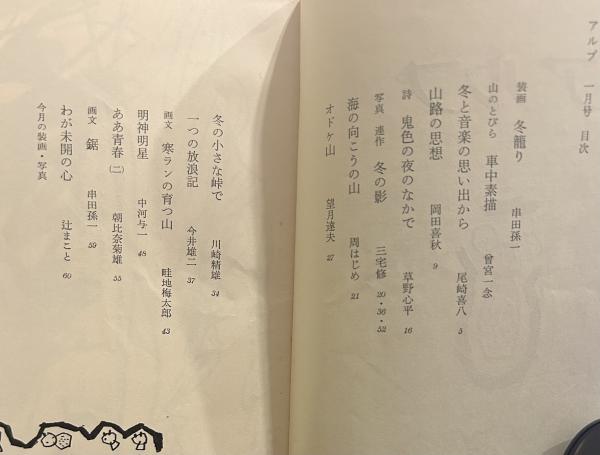 アルプ 一月号 目次
装画 冬籠り 串田孫一
山のとびら 車中素描 曾宮一念
冬と音楽の思い出から 尾崎喜八 5
山路の思想 岡田喜秋 9
詩 鬼色の夜のなかで 草野心平 16
写真 連作 冬の影 三宅修 20・36・52
海の向こうの山 周はじめ 21
オドケ山 望月達夫 27
冬の小さな峠で 川崎精雄 34
一つの放浪記 今井雄二 37
画文 寒ランの育つ山 畦地梅太郎 43
明神明星 中河与一 48
ああ青春(二) 朝比奈菊雄 55
画文 鋸 串田孫一 59
わが未開の心 辻まこと 60
今月の装画・写真